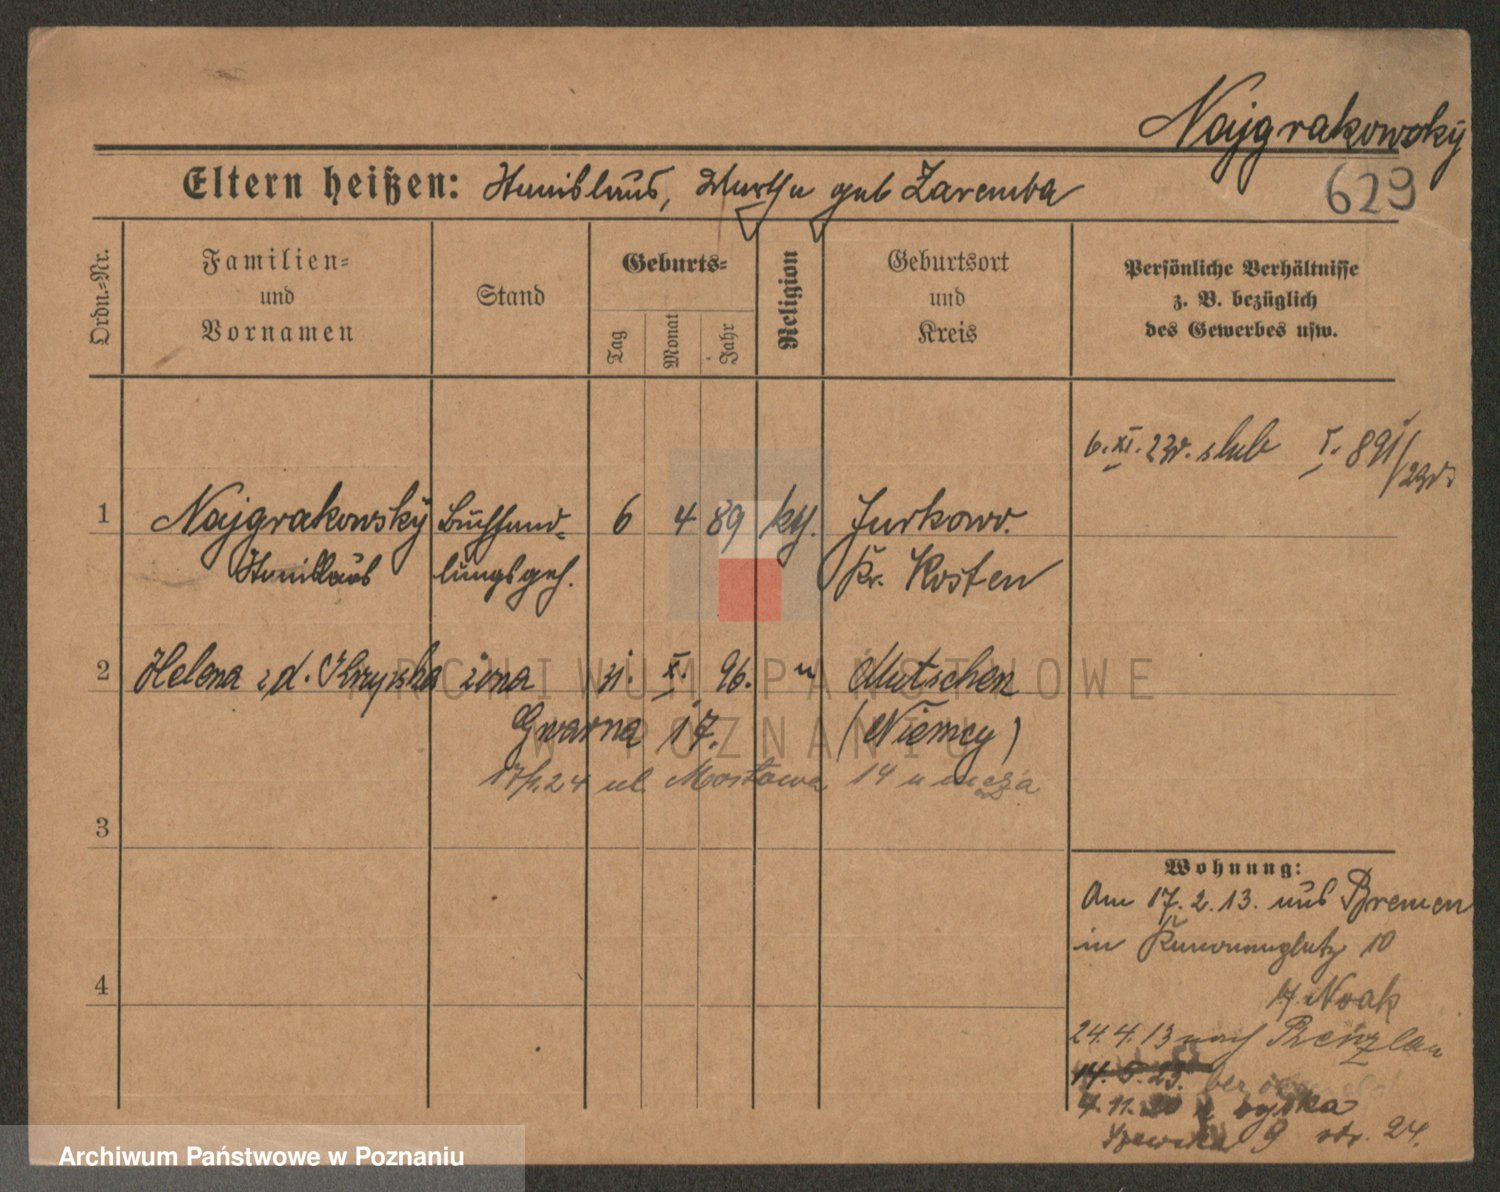 Najgrakowský
629
Eltern heißen: Stanislaus, Martha geb Zaremba
Ordn.-Nr.
Familien-
und
Vornamen
Stand
Geburts-
Tag
Monat
Jahr
Religion
Geburtsort
und
Kreis
Persönliche Verhältnisse
z. B. bezüglich
des Gewerbes usw.
6.XI.23r. slub I. 891/23r.
1 Najgrakowský Buchhand- 6 4 89 kg. Jurkowo.
Stanislaus lungsgeh. Kr. Kosten
2 Helena z d. żona 31. X. 96. " Mutschen
Gwarna 17. (Niemcy)
24 ul Mostowa 14 u męża
3
4
Wohnung:
Am 17.2.13. aus Bremen
in 10
Noak
24.4.13 nach
14.5.23.
4.11.
Szewska 9 str. 24.
ARCHIWUM PAŃSTWOWE
W POZNANIU
Archiwum Państwowe w Poznaniu